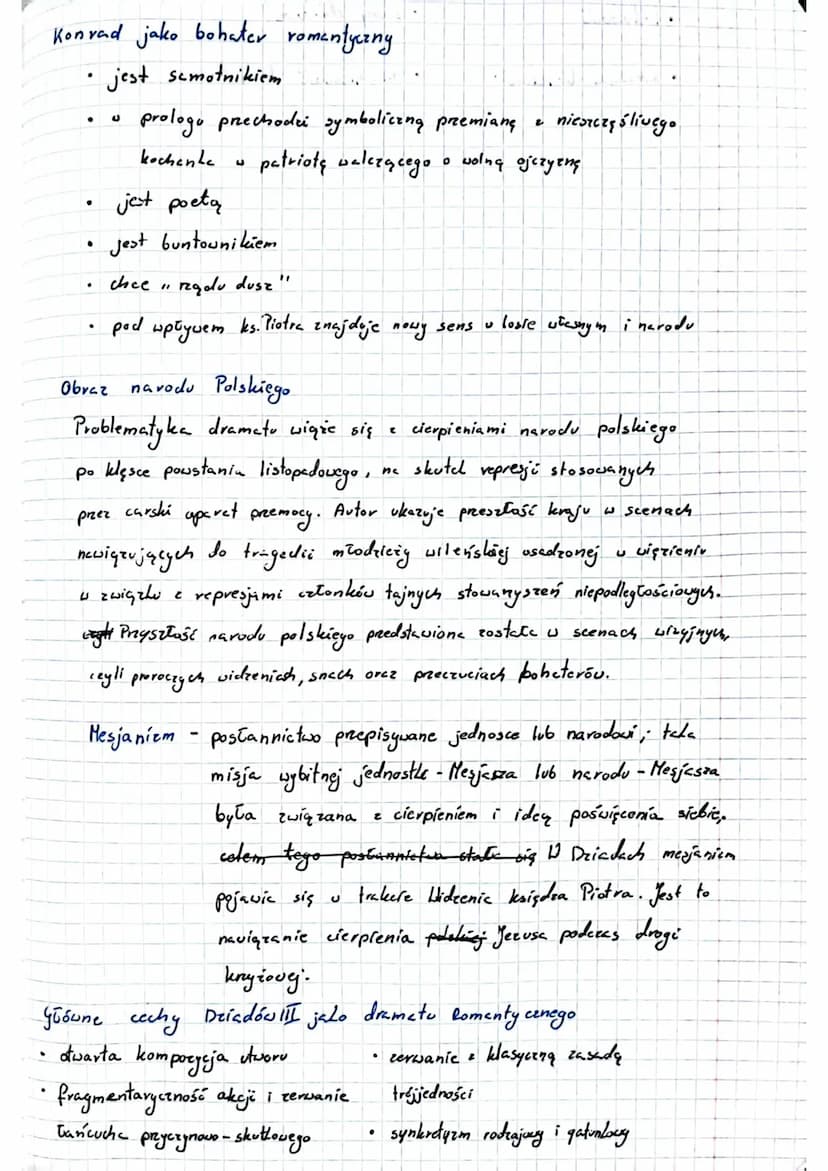 Konrad jako bohater romantyczny
• jest samotnikiem
• w prologu przechodzi symboliczną przemianę z nieszczęśliwego
kochanka w patriotę walczącego o wolną ojczyznę
• jest poetą
• jest buntownikiem
• chce "rządu dusz"
• pod wpływem ks. Piotra znajduje nowy sens w losie własnym i narodu
Obraz narodu Polskiego
Problematyka dramatu wiąże się z cierpieniami narodu polskiego
po klęsce powstania listopadowego, na skutek represji stosowanych
przez carski aparat przemocy. Autor ukazuje przeszłość kraju w scenach
nawiązujących do tragedii młodzieży wileńskiej osadzonej w więzieniu
w związku z represjami członków tajnych stowarzyszeń niepodległościowych.
Przyszłość narodu polskiego przedstawiona została w scenach wizyjnych,
czyli proroczych widzeniach, snach oraz przeczuciach bohaterów.
Mesjanizm - posłannictwo przepisywane jednosce lub narodowi; taka
misja wybitnej jednostki - Mesjasza lub narodu - Mesjasza
była związana z cierpieniem i ideą poświęcenia siebie,
celem tego posłannictwa stała się W Dziadach mesjanizm
pojawia się w trakcie Widzenia księdza Piotra. Jest to
nawiązanie cierpienia polskiej Jezusa podczas drogi
krzyżowej.
Główne cechy Dziadów III jako dramatu Romantycznego
• otwarta kompozycja utworu
• fragmentaryczność akcji i zerwanie
łańcucha przyczynowo-skutkowego
• zerwanie z klasyczną zasadą
trójjedności
• synkretyzm rodzajowy i gatunkowy